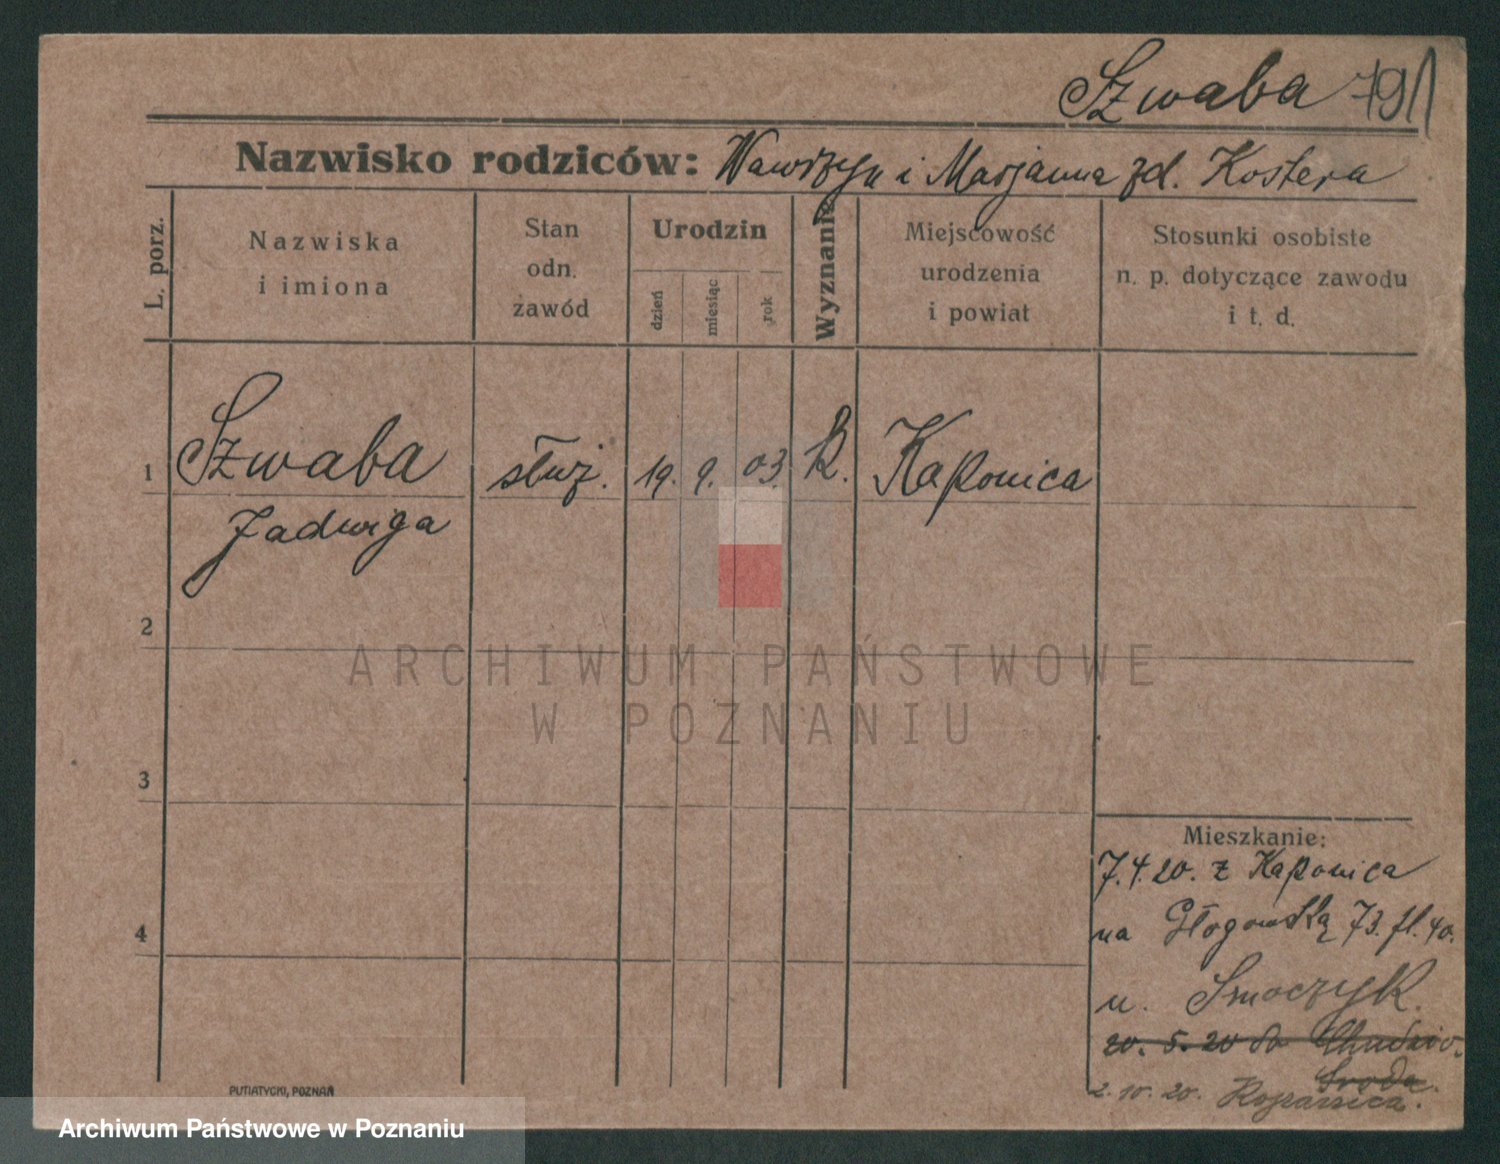 Szwaba 791
Nazwisko rodziców: Wawrzyn i Marjanna zd. Kostera
L. porz.
Nazwiska
i imiona
Stan
odn.
zawód
Urodzin
dzień
miesiąc
rok
Wyznanie
Miejscowość
urodzenia
i powiat
Stosunki osobiste
n. p. dotyczące zawodu
i t. d.
1 Szwaba służ. 19. 9. 03. k. Kaponica
Jadwiga
2
3
4
Mieszkanie:
7.4.20. z Kaponica
na Głogowską 73. fl. 40.
u. Smoczyk.
20. 5. 20 do
Środa.
2. 10. 20.
PUTIATYCKI, POZNAŃ
ARCHIWUM PAŃSTWOWE
W POZNANIU
Archiwum Państwowe w Poznaniu